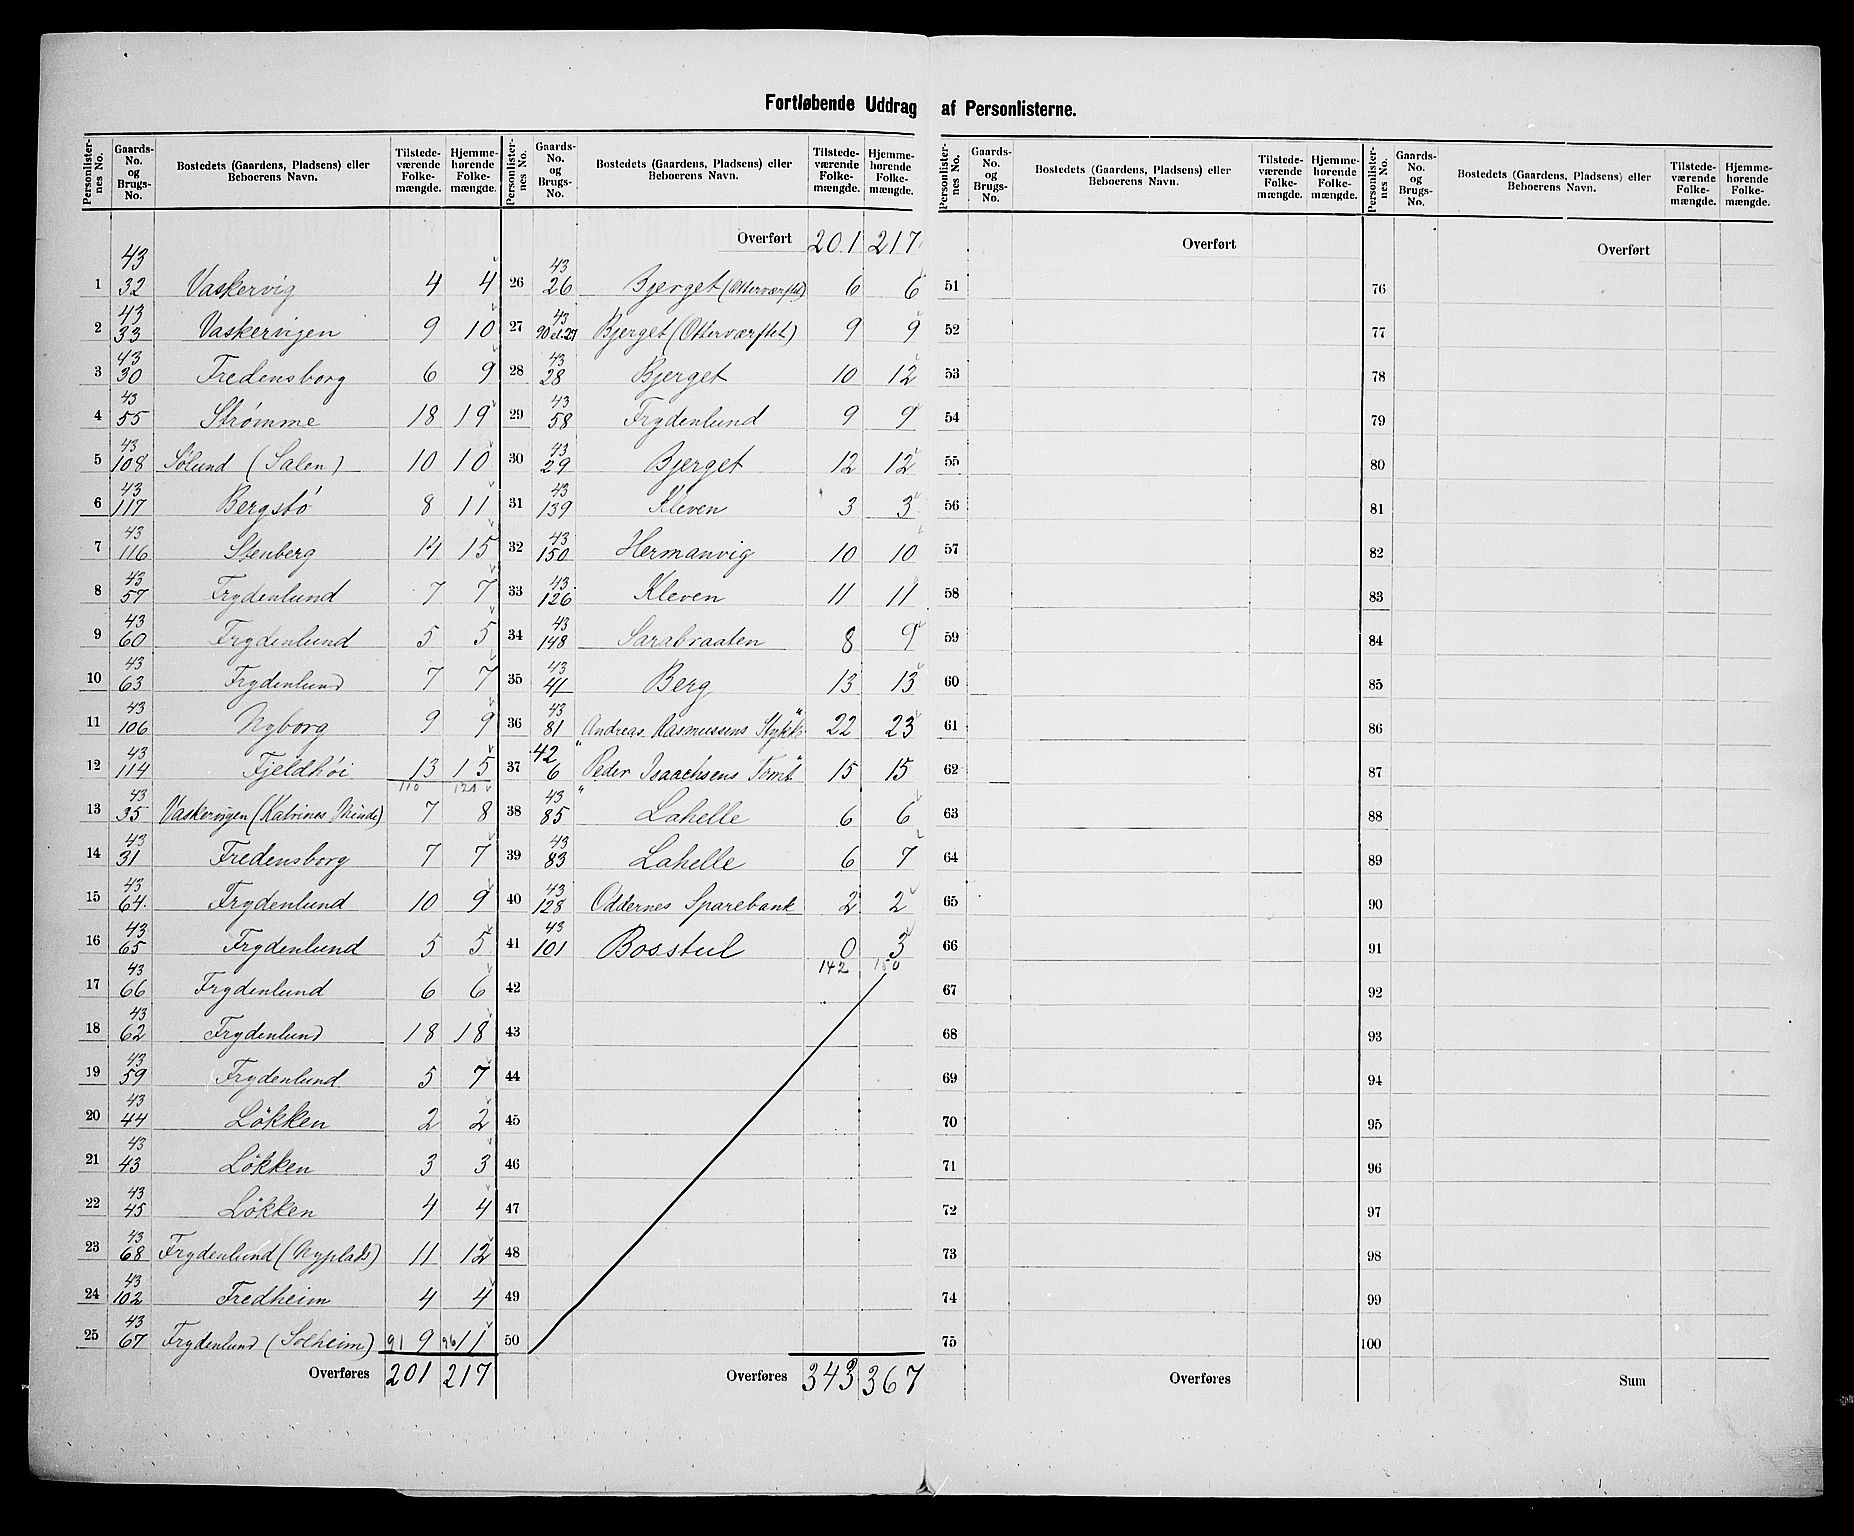 Fortløbende Uddrag af Personlisterne.
Personlisternes No. | Gaards-No. og Brugs-No. | Bostedets (Gaardens, Pladsens) eller Beboerens Navn. | Tilstedeværende Folkemængde. | Hjemmehørende Folkemængde.
1 | 43 32 | Vaskervig | 4 | 4
2 | 43 33 | Vaskervigen | 9 | 10
3 | 43 30 | Fredensborg | 6 | 9
4 | 43 55 | Strømme | 18 | 19
5 | 43 108 | Sølund (Salen) | 10 | 10
6 | 43 117 | Bergstø | 8 | 11
7 | 43 116 | Stenberg | 14 | 15
8 | 43 57 | Frydenlund | 7 | 7
9 | 43 60 | Frydenlund | 5 | 5
10 | 43 63 | Frydenlund | 7 | 7
11 | 43 106 | Nyborg | 9 | 9
12 | 43 114 | Fjeldhöi | 13 | 15
110 | 121
13 | 43 35 | Vaskervigen (Katrines Minde) | 7 | 8
14 | 43 31 | Fredensborg | 7 | 7
15 | 43 64 | Frydenlund | 10 | 9
16 | 43 65 | Frydenlund | 5 | 5
17 | 43 66 | Frydenlund | 6 | 6
18 | 43 62 | Frydenlund | 18 | 18
19 | 43 59 | Frydenlund | 5 | 7
20 | 43 44 | Lökken | 2 | 2
21 | 43 43 | Lökken | 3 | 3
22 | 43 45 | Lökken | 4 | 4
23 | 43 68 | Frydenlund (Nyplads) | 11 | 12
24 | 43 102 | Fredheim | 4 | 4
25 | 43 67 | Frydenlund (Solheim) | 91 9 | 96 11
Overføres | 201 | 217
Personlisternes No. | Gaards-No. og Brugs-No. | Bostedets (Gaardens, Pladsens) eller Beboerens Navn. | Tilstedeværende Folkemængde. | Hjemmehørende Folkemængde.
Overført | 201 | 217
26 | 43 26 | Bjerget (Otterværftet) | 6 | 6
27 | 43 90 el. 27 | Bjerget (Otterværftet) | 9 | 9
28 | 43 28 | Bjerget | 10 | 12
29 | 43 58 | Frydenlund | 9 | 9
30 | 43 29 | Bjerget | 12 | 12
31 | 43 139 | Kleven | 3 | 3
32 | 43 150 | Hermanvig | 10 | 10
33 | 43 126 | Kleven | 11 | 11
34 | 43 148 | Sarabraaten | 8 | 9
35 | 43 41 | Berg | 13 | 13
36 | 43 81 | Andreas Rasmussens Stykk" | 22 | 23
37 | 42 6 | "Peder Isaachsens Tomt" | 15 | 15
38 | 43 85 | Lahelle | 6 | 6
39 | 43 83 | Lahelle | 6 | 7
40 | 43 128 | Oddernes Sparebank | 2 | 2
41 | 43 101 | Bosstul | 0 | 3
142 | 150
42
43
44
45
46
47
48
49
50
Overføres | 343 | 367
Personlisternes No. | Gaards-No. og Brugs-No. | Bostedets (Gaardens, Pladsens) eller Beboerens Navn. | Tilstedeværende Folkemængde. | Hjemmehørende Folkemængde.
Overført
51
52
53
54
55
56
57
58
59
60
61
62
63
64
65
66
67
68
69
70
71
72
73
74
75
Overføres
Personlisternes No. | Gaards-No. og Brugs-No. | Bostedets (Gaardens, Pladsens) eller Beboerens Navn. | Tilstedeværende Folkemængde. | Hjemmehørende Folkemængde.
Overført
76
77
78
79
80
81
82
83
84
85
86
87
88
89
90
91
92
93
94
95
96
97
98
99
100
Sum